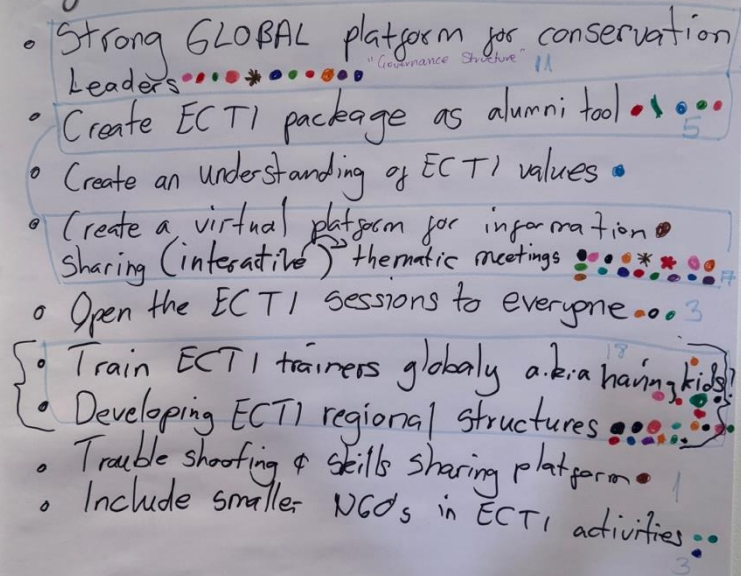 • Strong GLOBAL platform for conservation
"Governance Structure" 11
Leaders
• Create ECTI package as alumni tool
5
• Create an understanding of ECTI values
• Create a virtual platform for information
sharing (interative) thematic meetings
• Open the ECTI sessions to everyone 3
18
• Train ECTI trainers globaly a.k.a having kids!
• Developing ECTI regional structures
• Trouble shooting & skills sharing platform 1
• Include smaller NGO's in ECTI activities
3